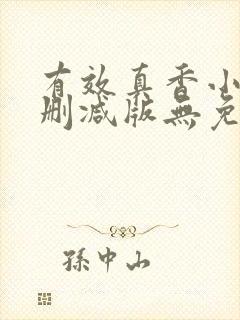 有效真香小
删减版無免
孫中山